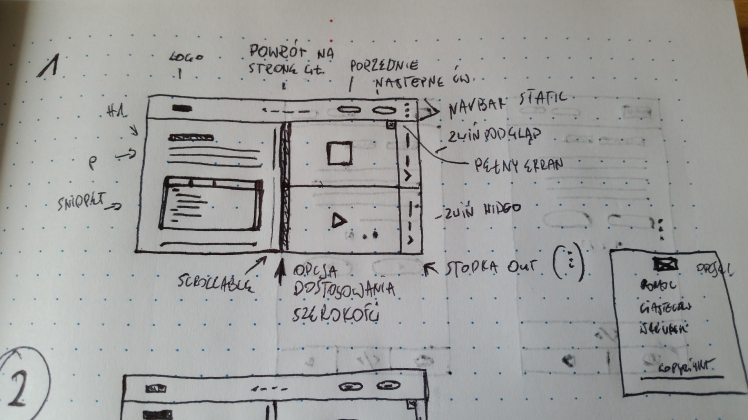 1
LOGO
POWRÓT NA
STRONĘ GŁ.
POPRZEDNIE
NASTĘPNE ĆW.
H1
NAVBAR STATIC
P
ZWIŃ PODGLĄD
PEŁNY EKRAN
SNIPPET
ZWIŃ WIDEO
SCROLLABLE
OPCJA
DOSTOSOWANIA
SZEROKOŚCI
STOPKA OUT
POMOC
COPYRIGHT
2